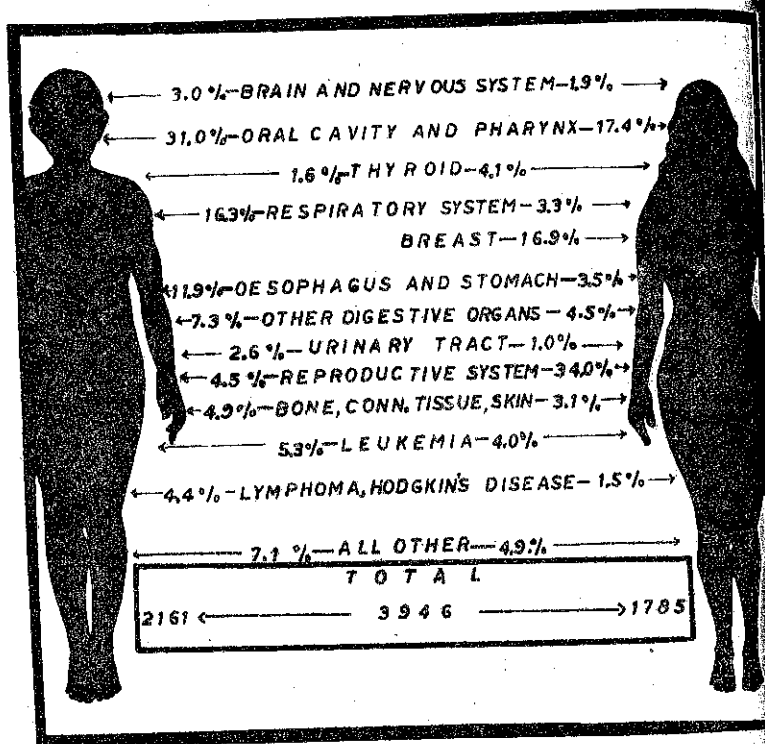 3.0 %-BRAIN AND NERVOUS SYSTEM-1.9%
31.0%-ORAL CAVITY AND PHARYNX-17.4%
1.6 %-THYROID-4.1%
16.3%-RESPIRATORY SYSTEM-3.3%
BREAST-16.9%
11.9%-OESOPHAGUS AND STOMACH-3.5%
7.3 %-OTHER DIGESTIVE ORGANS-4.5%
2.6 %-URINARY TRACT-1.0%
4.5 %-REPRODUCTIVE SYSTEM-34.0%
4.9%-BONE, CONN. TISSUE, SKIN-3.1%
5.3%-LEUKEMIA-4.0%
4.4%-LYMPHOMA, HODGKIN'S DISEASE-1.5%
7.1 %-ALL OTHER-4.9%
TOTAL
2161 3946 1785